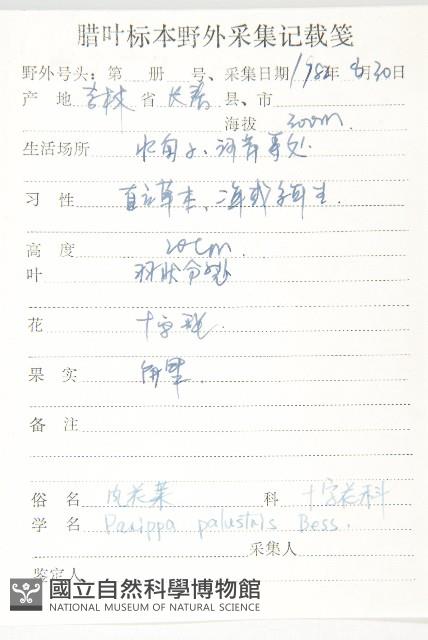 腊叶标本野外采集记载笺
野外号头：第 册 号、采集日期1982年8月30日
产 地 吉林 省 长春 县、市
海拔 200m.
生活场所
习 性 直立草本、二年或多年生.
高 度 20cm.
叶 羽状分裂
花 十字形.
果 实 角果.
备 注
俗 名 风花菜 科 十字花科
学 名 Rorippa palustris Bess.
采集人
鉴定人
國立自然科學博物館
NATIONAL MUSEUM OF NATURAL SCIENCE